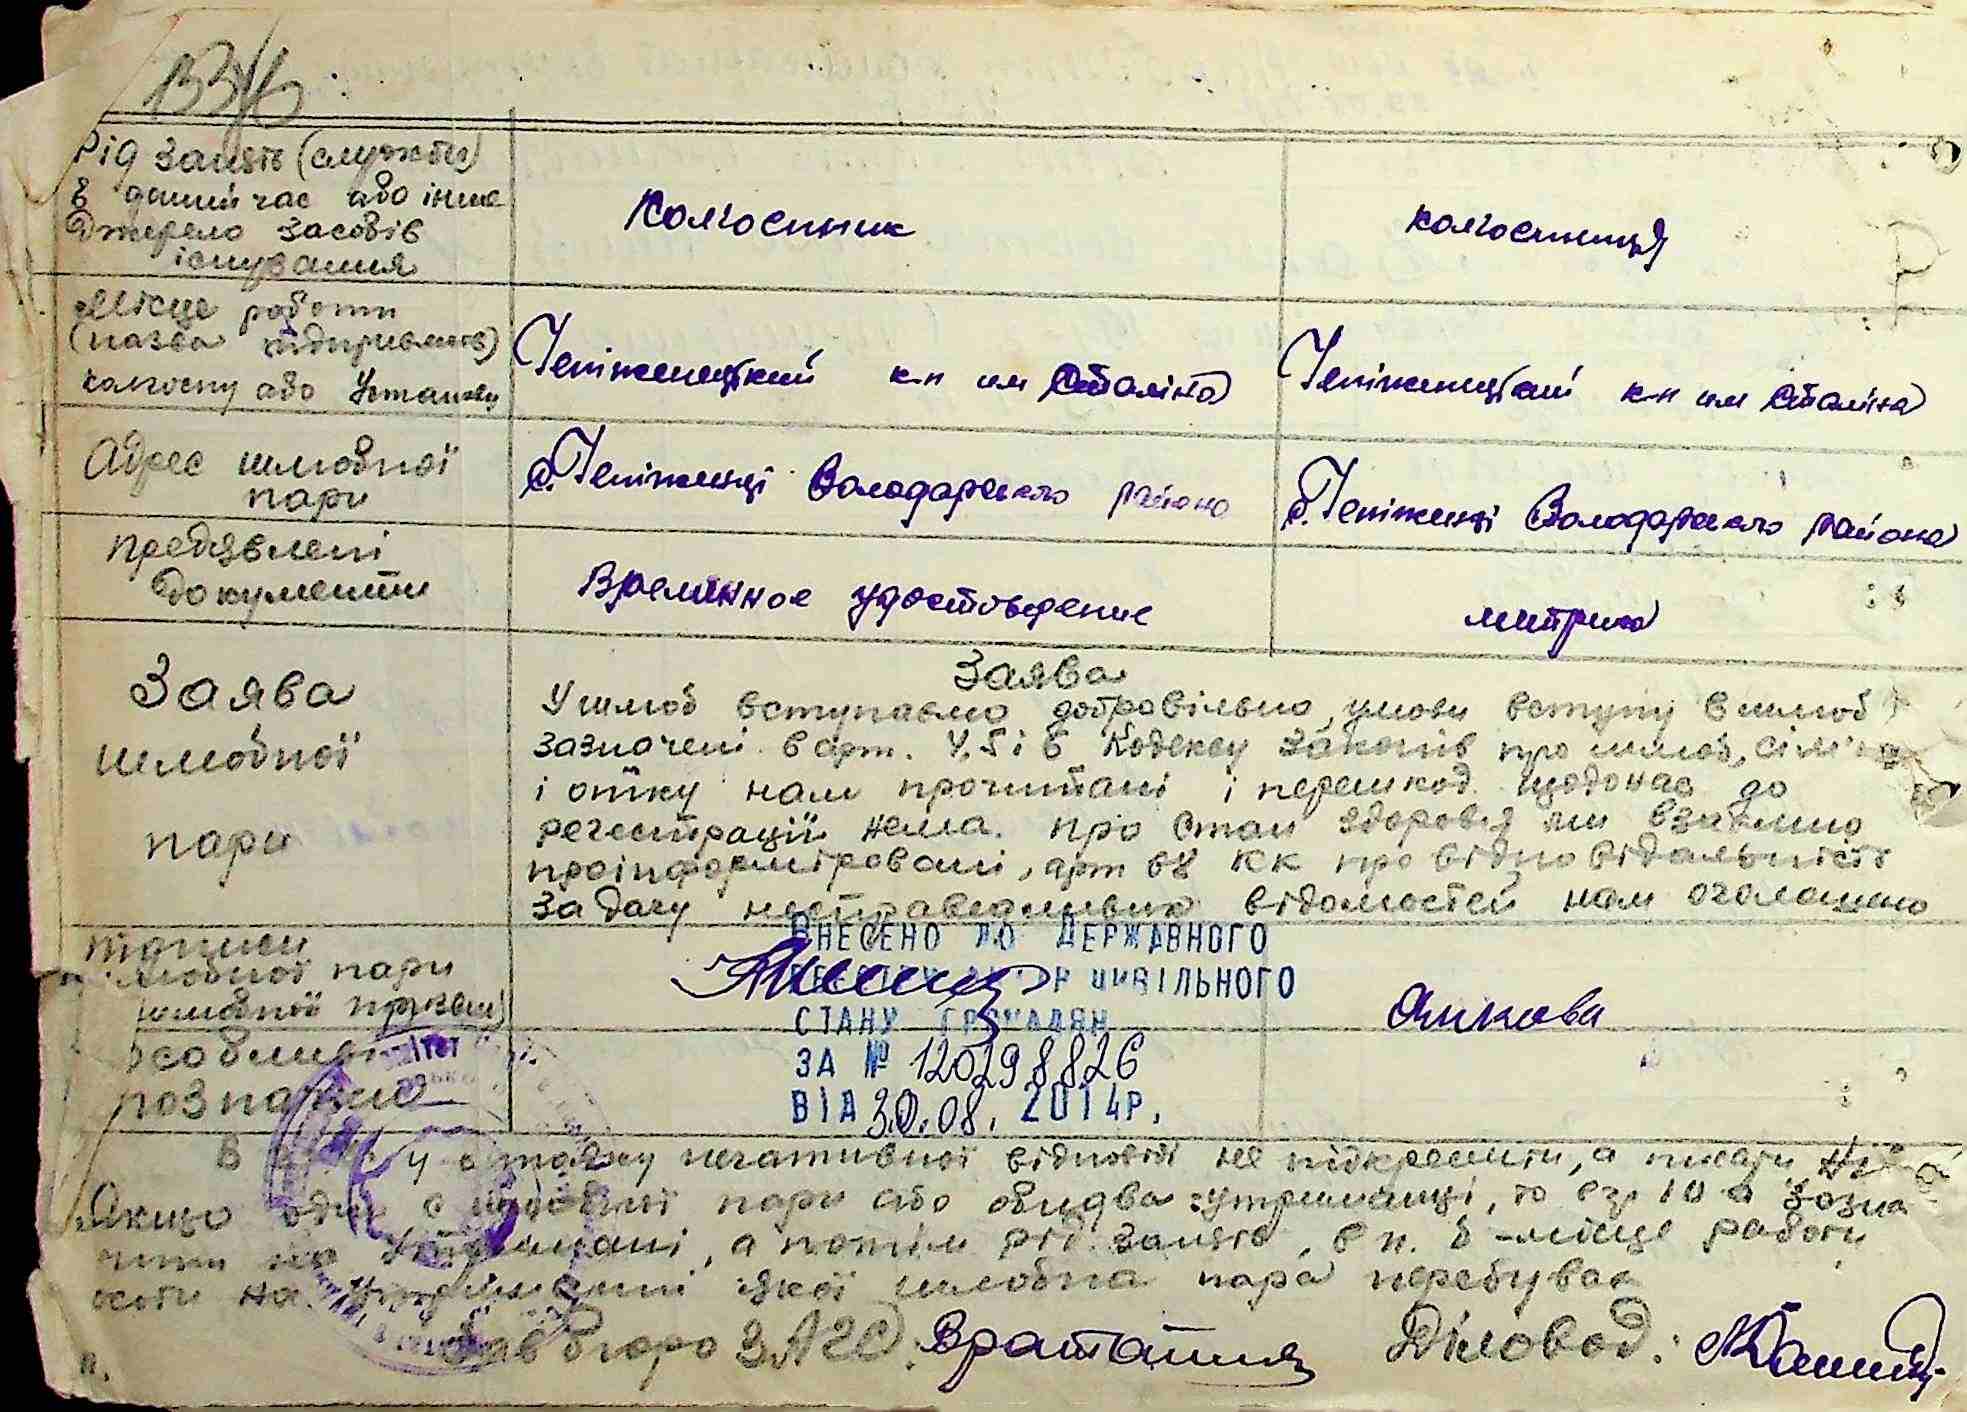 Рід занять (служби)
в даний час або інше
Джерело засобів
існування
Колгоспник
колгоспниця
Місце работи
(назва підприємств)
колгоспу або Установи
Тепіженецкий к-п им Сталіна
Тепіженицкий к-п им Сталіна
Адрес шлюбної
пари
с. Тепіженці Володарского района
с. Тепіженці Володарского района
Предявлені
документи
Временное удостоведение
митрика
Заява
шлюбної
пари
Заява
У шлюб вступаємо добровільно, умови вступу в шлюб
зазначені в арт. 4, 5 і 6 Кодексу законів про шлюб, сім'ю
і опіку нам прочитані і перешкод щодо нас до
регестрації нема. Про стан здоровя ми взаємно
проінформіровані, арт 68 КК про відповідальність
за дачу несправедливих відомостей нам оголошено
підписи
шлюбної пари
шлюбної призви)
Янкова
особливі
познатки
ВНЕСЕНО ДО ДЕРЖАВНОГО
РЕЄСТРУ АКТІВ ЦИВІЛЬНОГО
СТАНУ ГРОМАДЯН
ЗА № 120298826
ВІД 30.08. 2014Р.
В у отояку негативної відповіді не підкреслити, а писати ні
Якщо один с шлюбної пари або обидва утриманці, то в гр 10 а зазна
чити на Утриманні, а потім рід занять, в п. б - місце работи
особи на утриманні якої шлюбна пара перебуває
Завбюро ЗАГС: Братание
Діловод:
п.